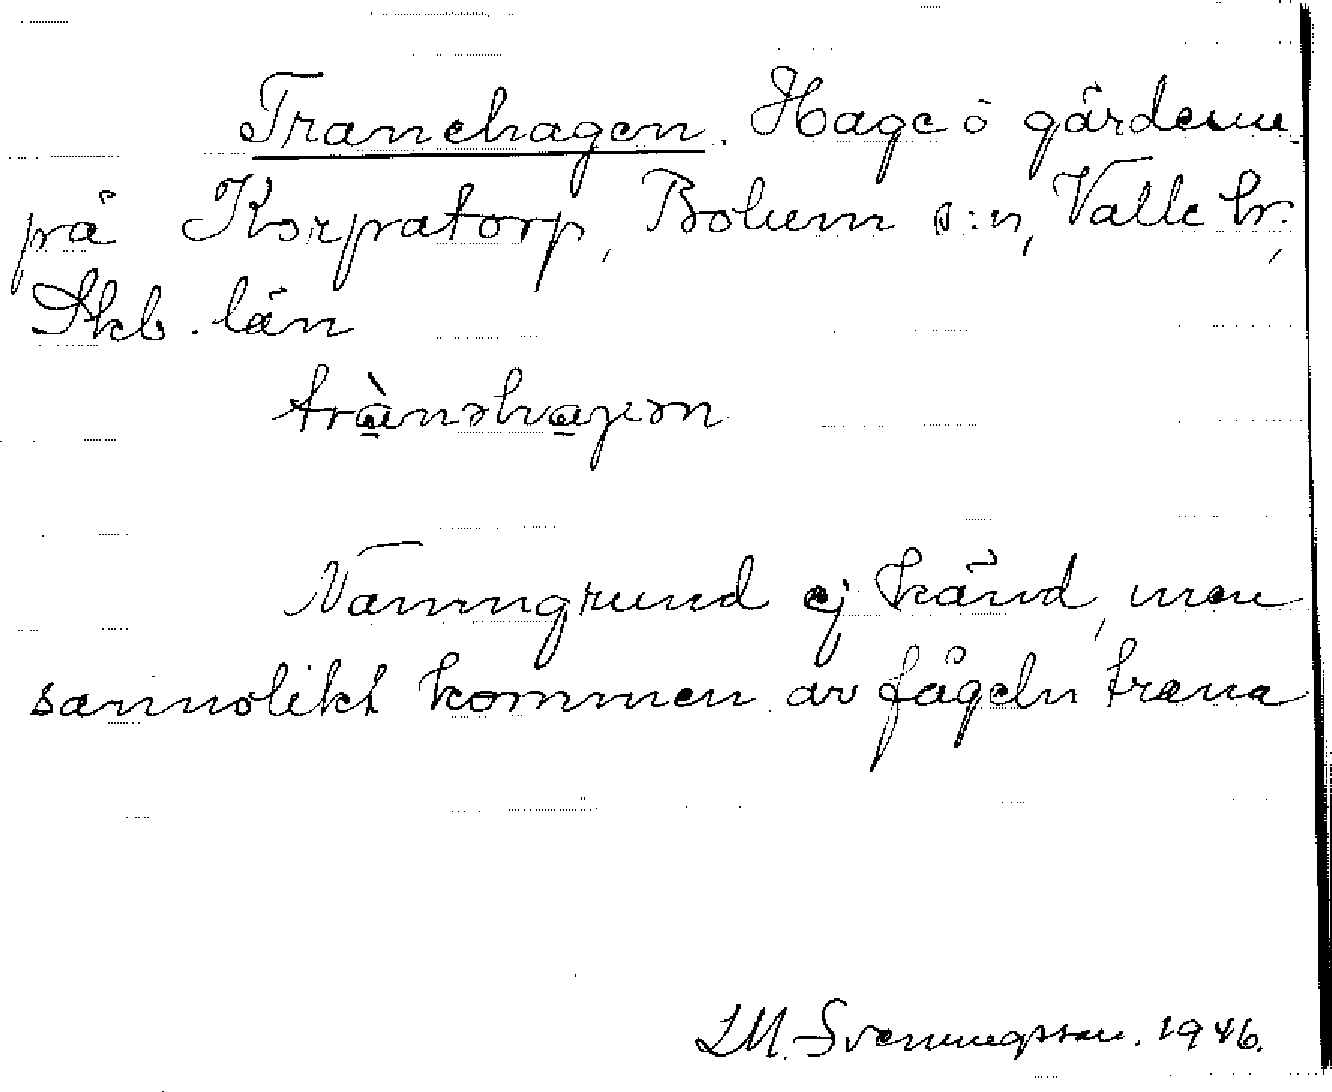 Tranehagen. Hage ö gärdena
på Korpatorp, Bolum s:n, Valle hr.,
Skb. län
trànəhagən
Namngrund ej känd, men
sannolikt kommen av fågeln trana
LM. Svenungsson. 1946.